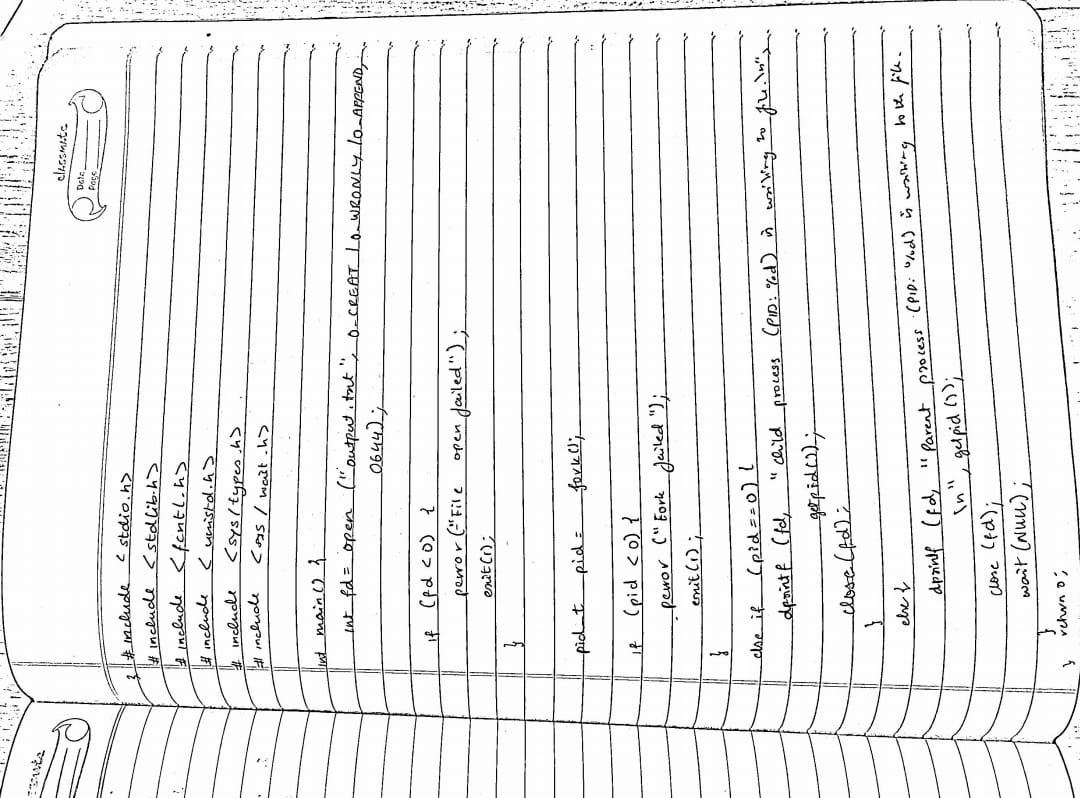 classmate
Date
Page
3. # include <stdio.h>
# include <stdlib.h>
# include <fcntl.h>
# include <unistd.h>
# include <sys/types.h>
# include <sys/wait.h>
int main() {
int fd = open ("output.txt", O_CREAT | O_WRONLY | O_APPEND,
0644);
if (fd < 0) {
perror ("File open failed");
exit(1);
}
pid_t pid = fork();
if (pid < 0) {
perror ("Fork failed");
exit(1);
}
else if (pid==0) {
dprintf (fd, "Child process (PID: %d) is writing to file.\n",
getpid());
close(fd);
}
else {
dprintf (fd, "Parent process (PID: %d) is writing to the file.
\n", getpid());
close (fd);
wait (NULL);
}
return 0;
}